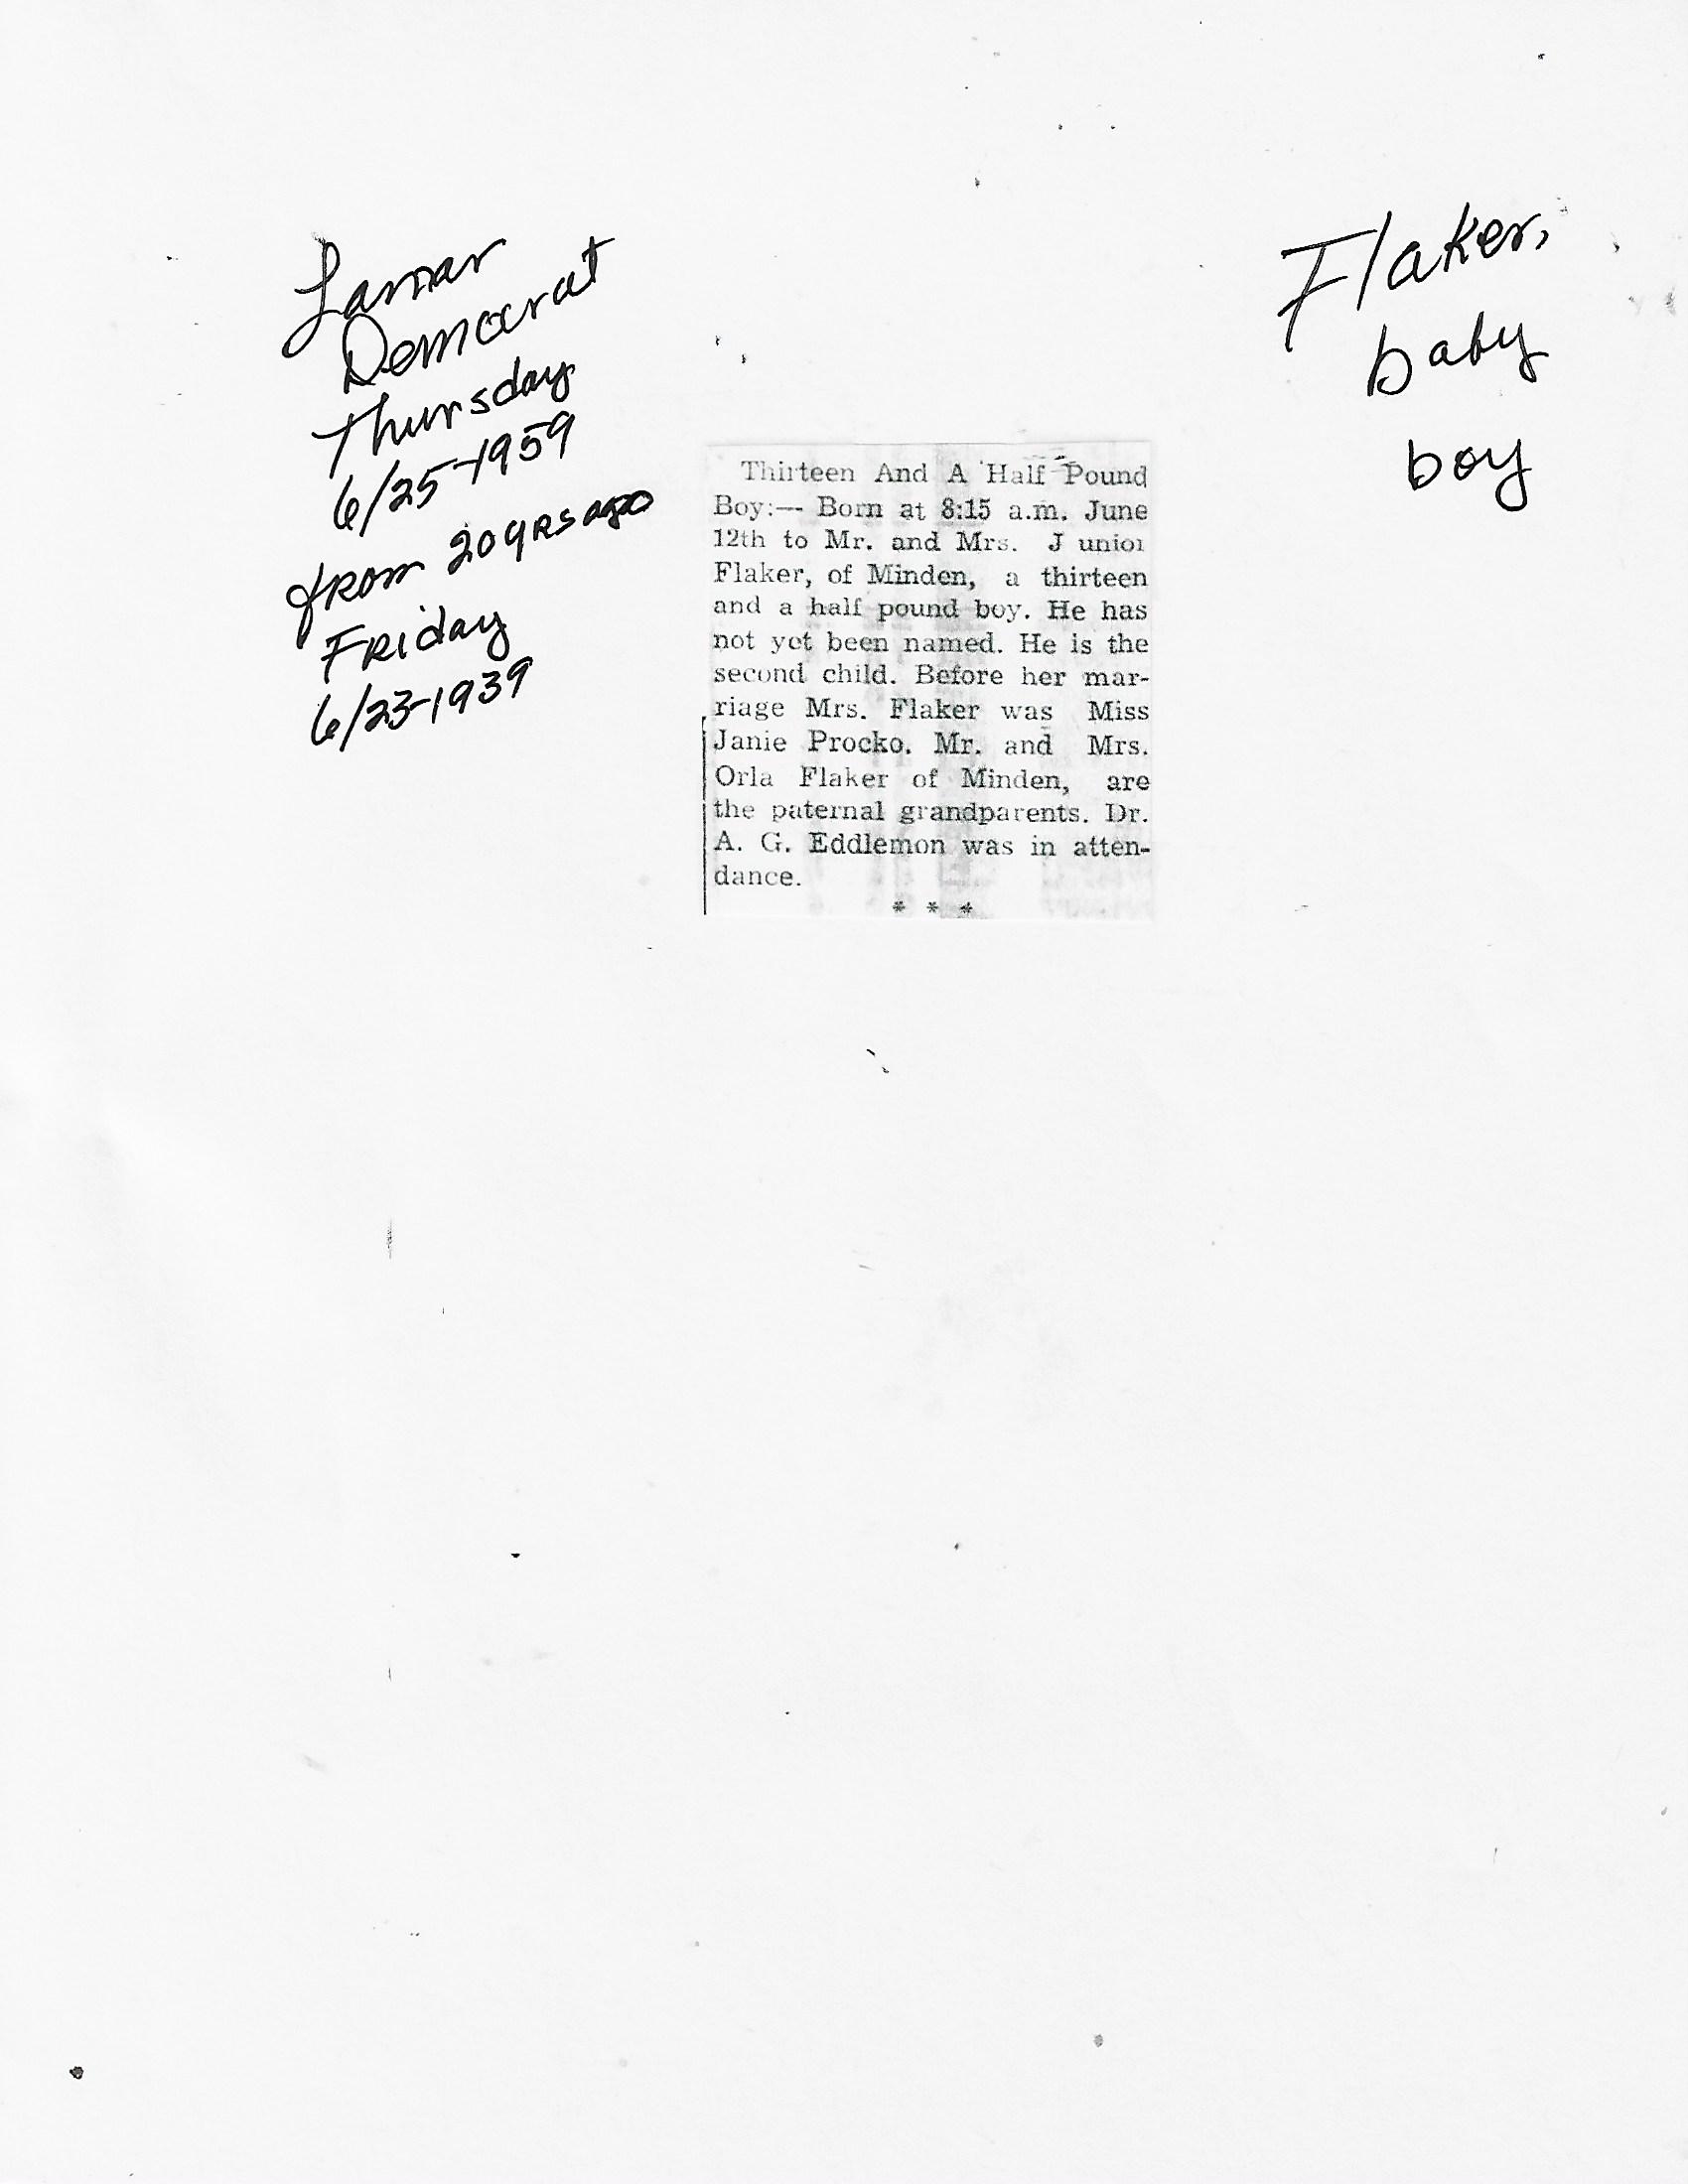 Lamar
Democrat
Thursday
6/25-1959
from 20 yRS ago
FRiday
6/23-1939
Flaker,
baby
boy
Thirteen And A Half Pound
Boy:— Born at 8:15 a.m. June
12th to Mr. and Mrs. J unior
Flaker, of Minden, a thirteen
and a half pound boy. He has
not yet been named. He is the
second child. Before her mar-
riage Mrs. Flaker was Miss
Janie Procko. Mr. and Mrs.
Orla Flaker of Minden, are
the paternal grandparents. Dr.
A. G. Eddlemon was in atten-
dance.
* * *